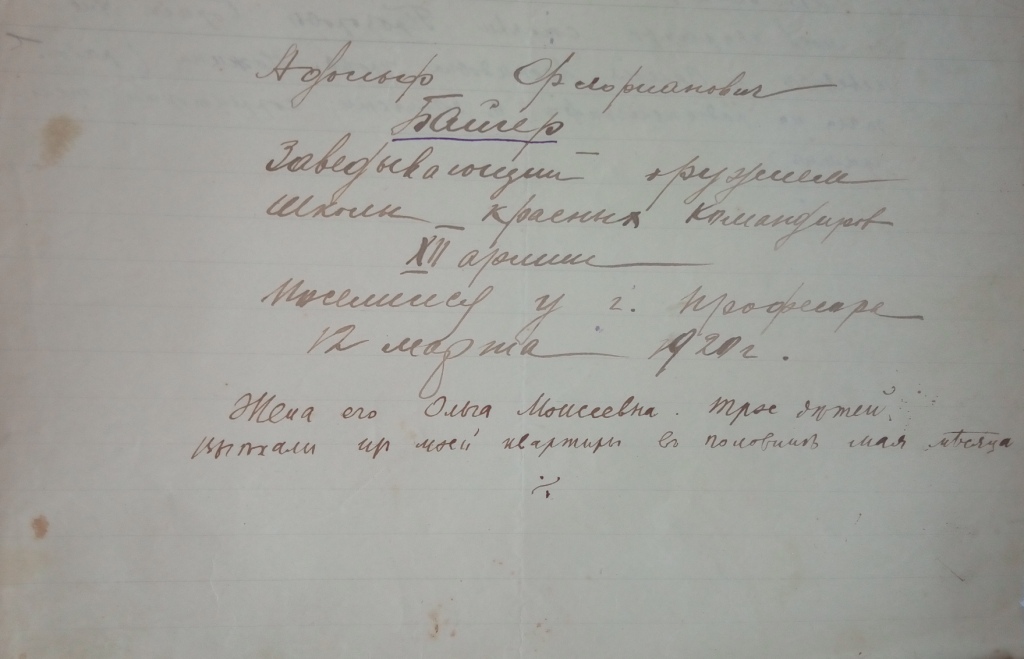 Адольф Флорианович
Байер
Заведывающий оружием
Школы красных командиров
XII армии
Поселился у г. професора
12 марта 1920 г.
Жена его Ольга Моисеевна. трое дѣтей.
выѣхали из моей квартиры въ половинѣ мая мѣсяца